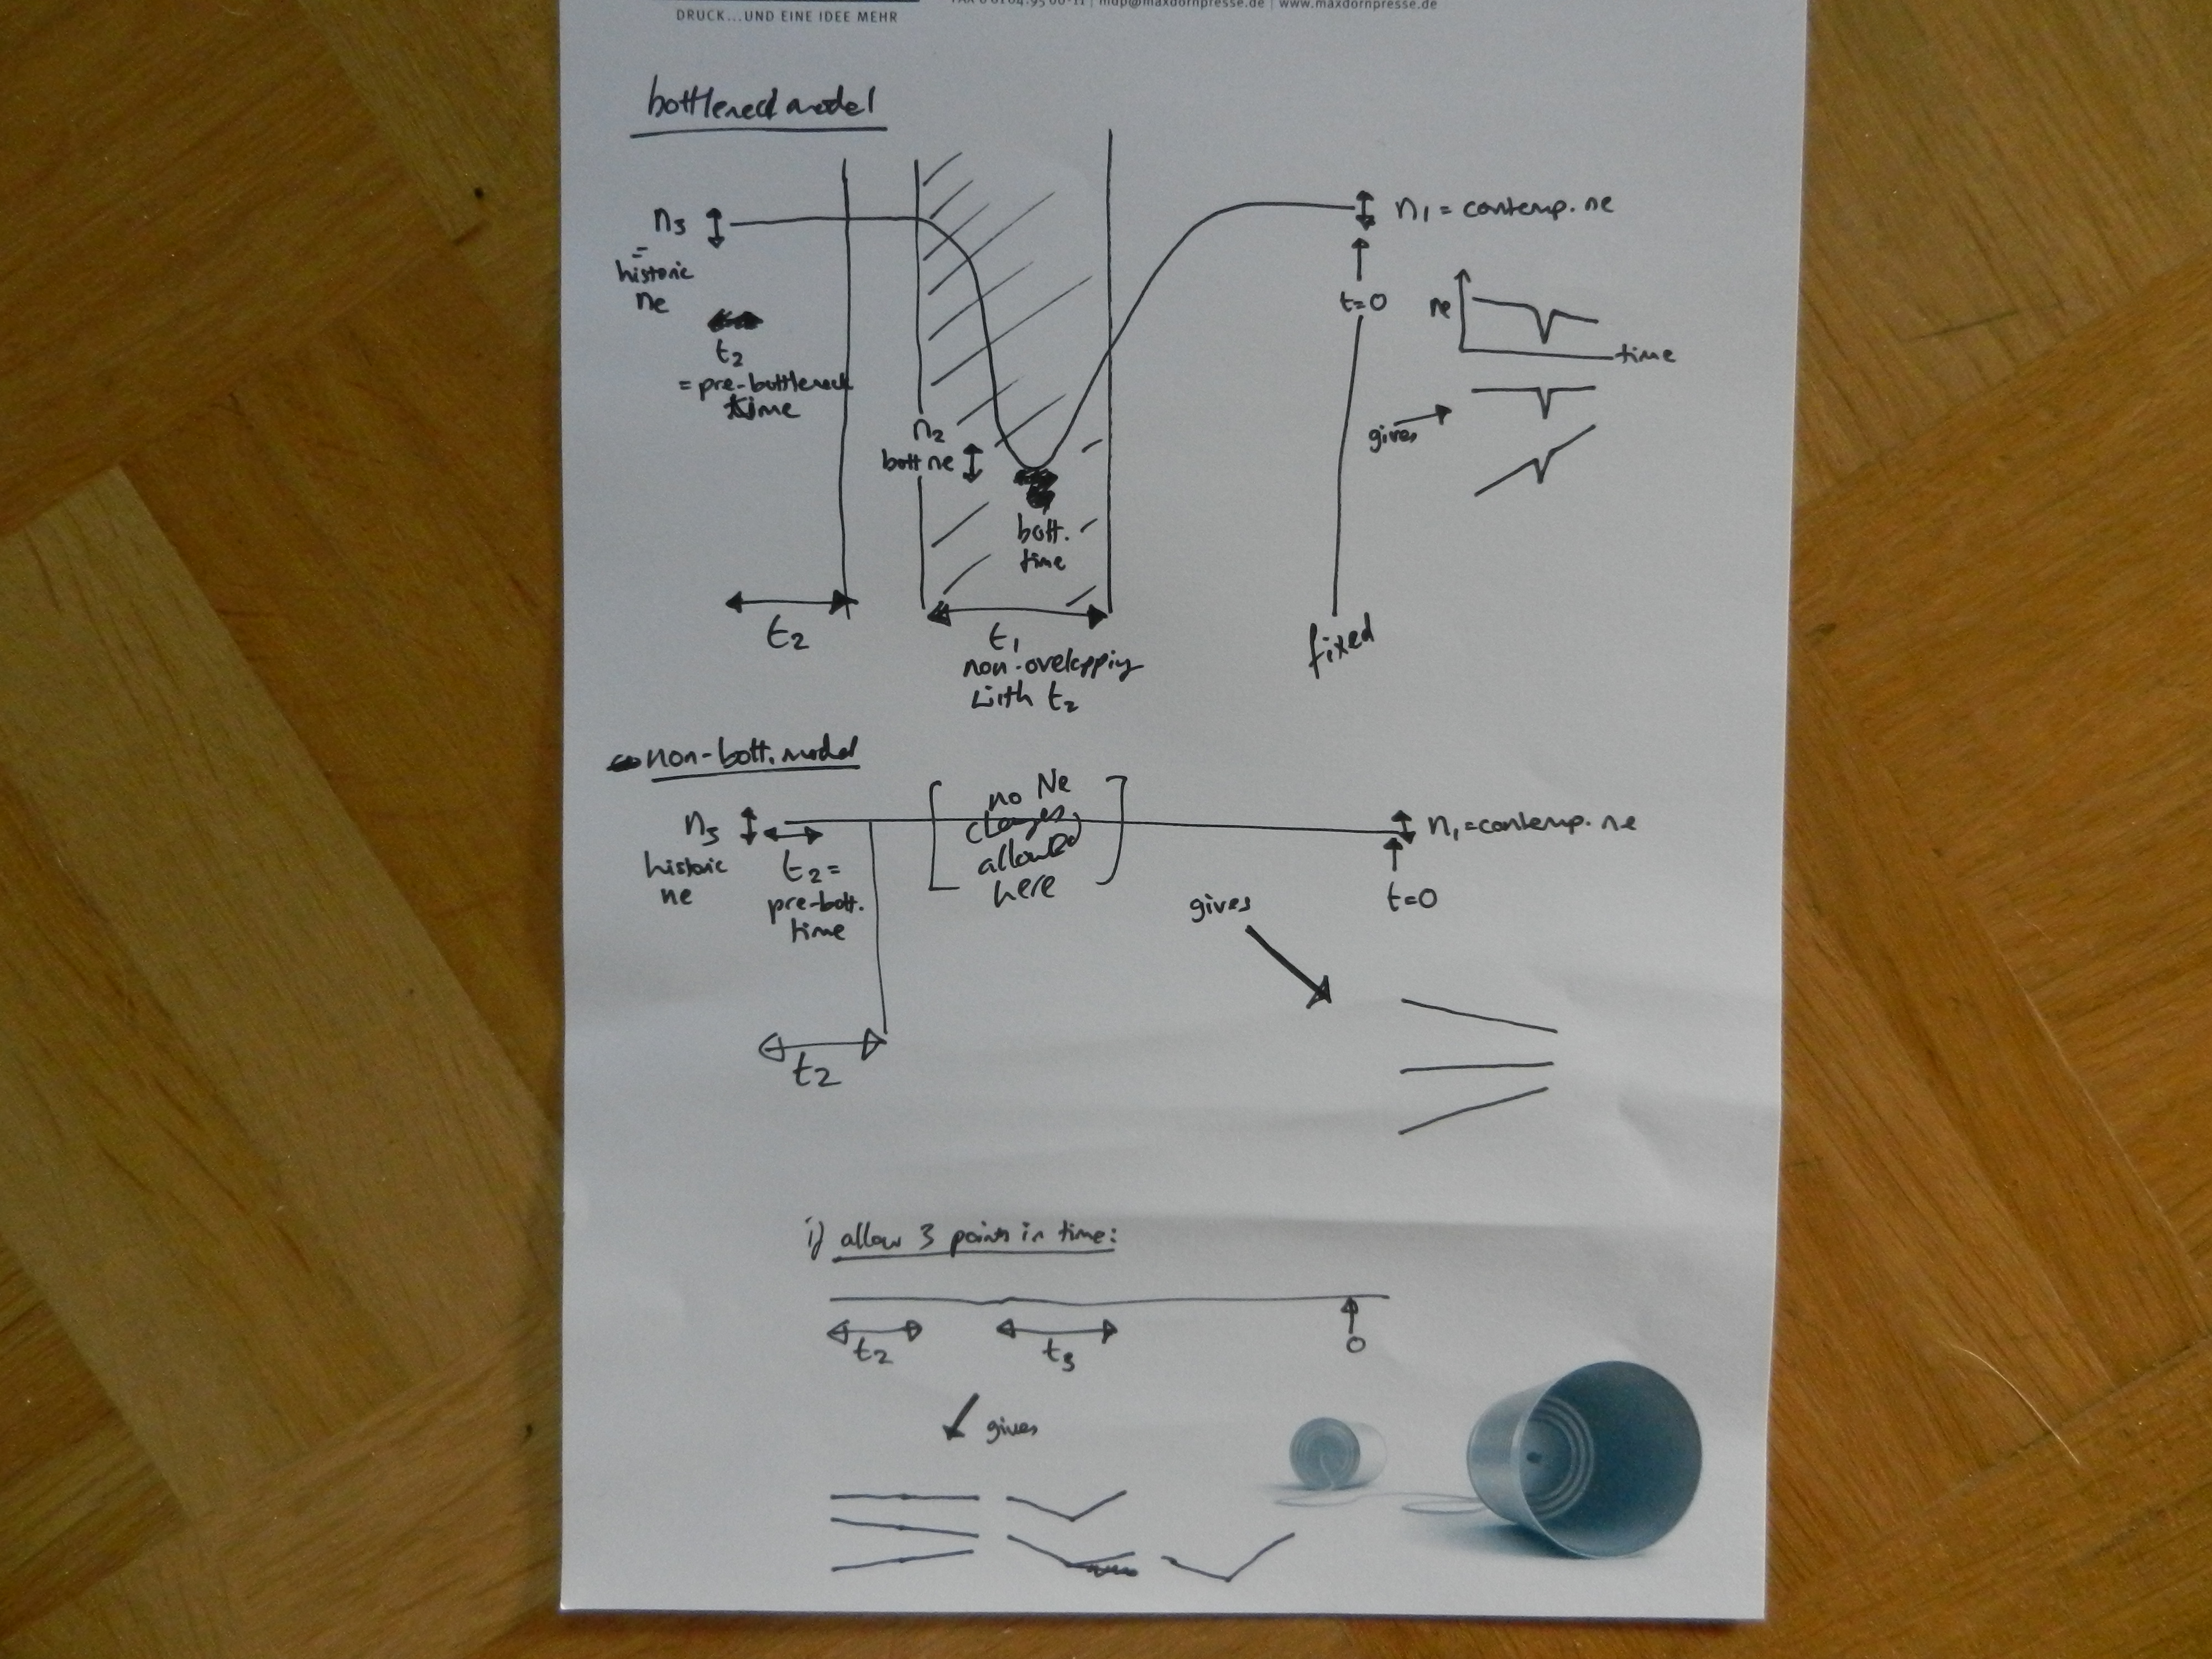 DRUCK...UND EINE IDEE MEHR
mdp@maxdornpresse.de | www.maxdornpresse.de
bottleneck model
n3
=
historic
ne
t2
= pre-bottleneck
time
n2
bott ne
bott.
time
n1 = contemp. ne
t=0
ne
time
gives
fixed
t2
t1
non-overlapping
with t2
non-bott. model
n3
historic
ne
t2 =
pre-bott.
time
no Ne
changes
allowed
here
n1 = contemp. ne
t=0
gives
t2
i) allow 3 points in time:
t2
t3
0
gives